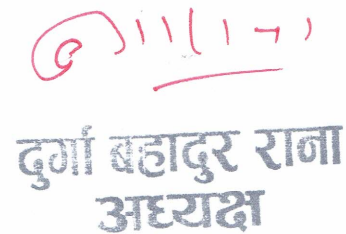 दुर्गा बहादुर राना
अध्यक्ष